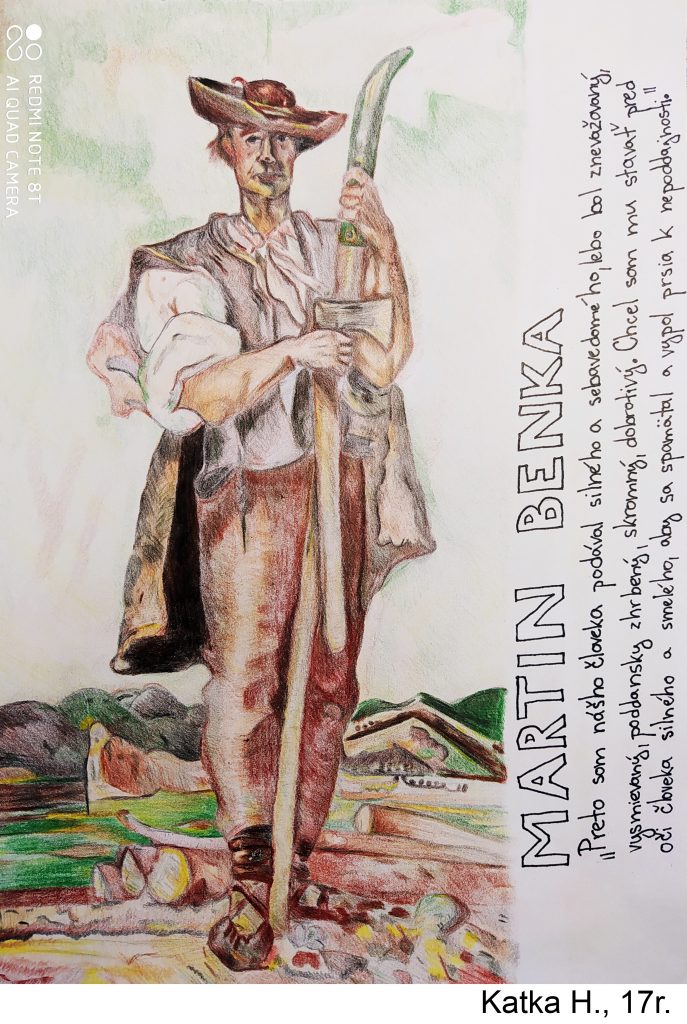 REDMI NOTE 8T
AI QUAD CAMERA
MARTIN BENKA
„Preto som nášho človeka podával silného a sebavedomého, lebo bol znevažovaný,
vysmievaný, poddansky zhrbený, skromný, dobrotivý. Chcel som mu stavať pred
oči človeka silného a smelého, aby sa spamätal a vypol prsia k nepoddajnosti."
Katka H., 17r.